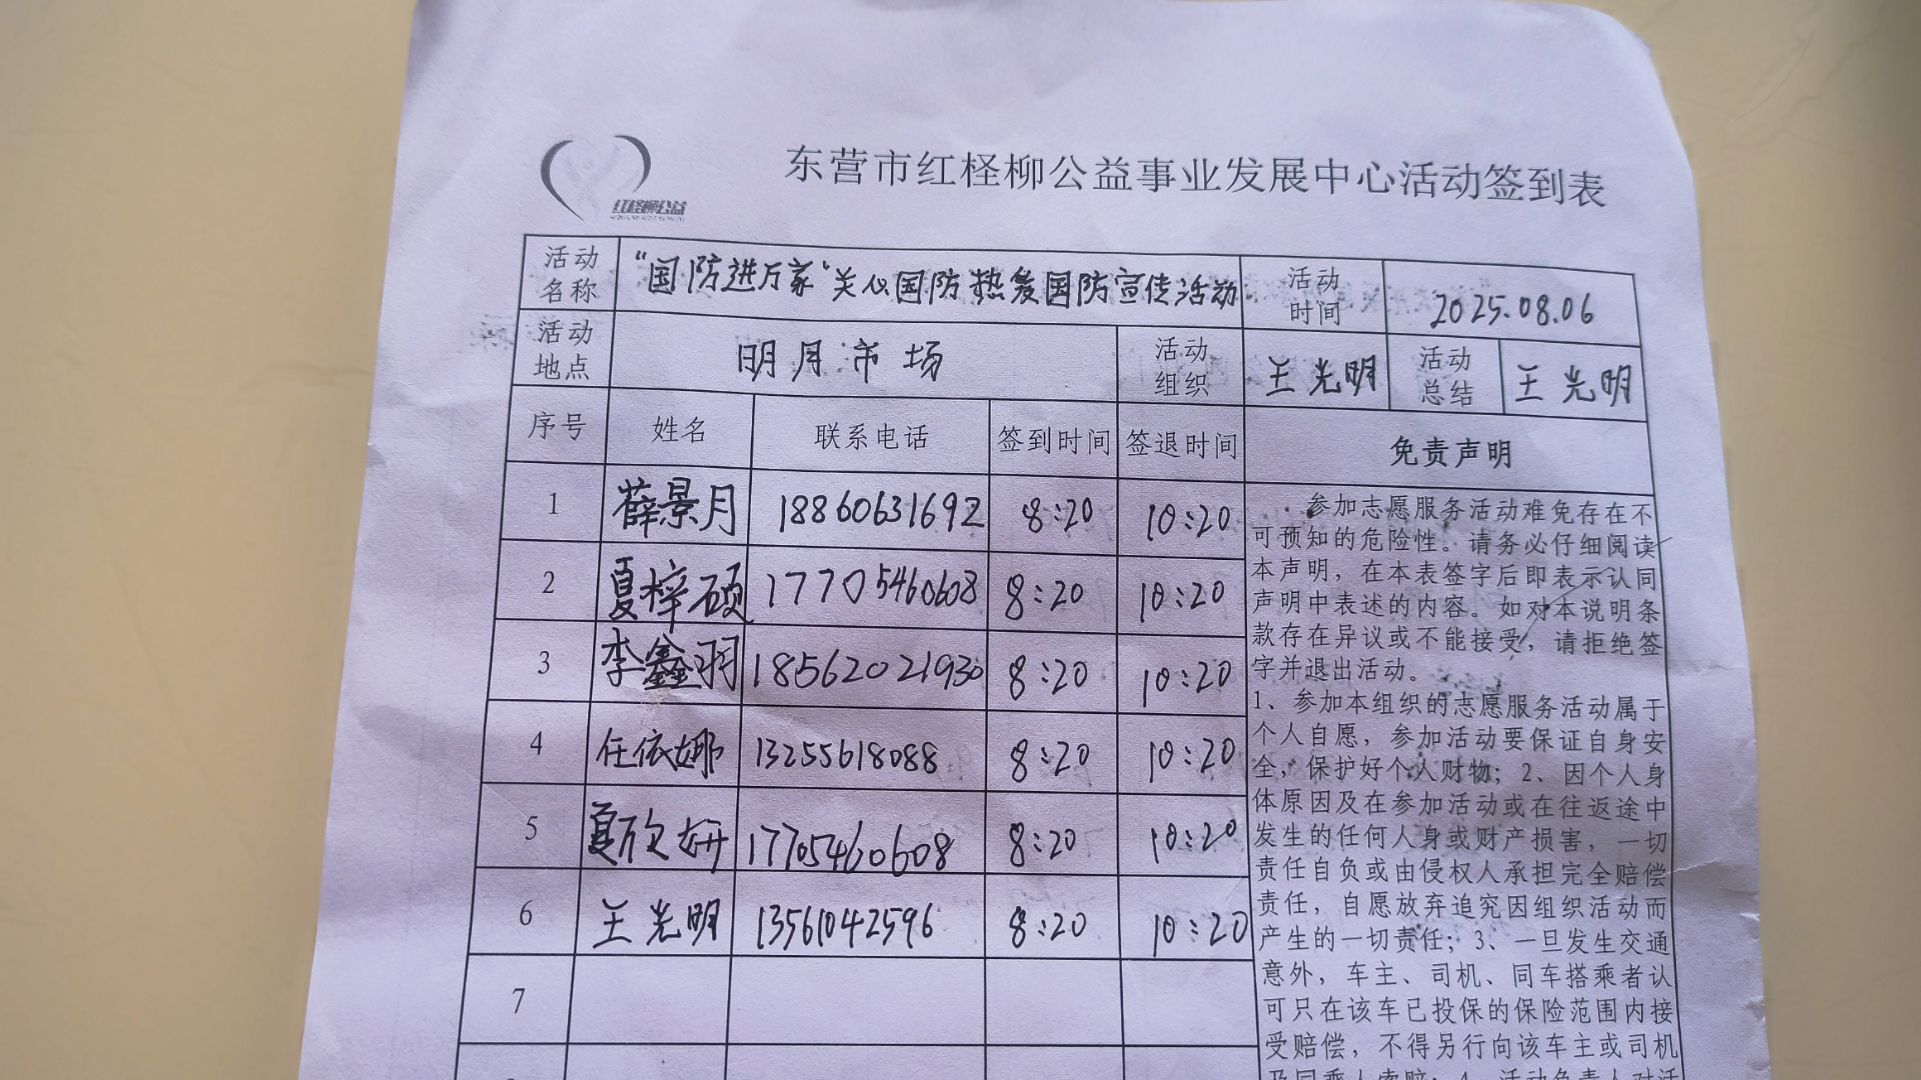 东营市红柽柳公益事业发展中心活动签到表
红柽柳公益
活动名称 “国防进万家”关心国防热爱国防宣传活动 活动时间 2025.08.06
活动地点 明月市场 活动组织 王光明 活动总结 王光明
序号 姓名 联系电话 签到时间 签退时间 免责声明
1 薛景月 18860631692 8:20 10:20
2 夏梓硕 17705460608 8:20 10:20
3 李鑫羽 18562021930 8:20 10:20
4 任依娜 13255618088 8:20 10:20
5 夏欣妍 17705460608 8:20 10:20
6 王光明 13561042596 8:20 10:20
7
参加志愿服务活动难免存在不
可预知的危险性。请务必仔细阅读
本声明，在本表签字后即表示认同
声明中表述的内容。如对本说明条
款存在异议或不能接受，请拒绝签
字并退出活动。
1、参加本组织的志愿服务活动属于
个人自愿，参加活动要保证自身安
全，保护好个人财物；2、因个人身
体原因及在参加活动或在往返途中
发生的任何人身或财产损害，一切
责任自负或由侵权人承担完全赔偿
责任，自愿放弃追究因组织活动而
产生的一切责任；3、一旦发生交通
意外，车主、司机、同车搭乘者认
可只在该车已投保的保险范围内接
受赔偿，不得另行向该车主或司机